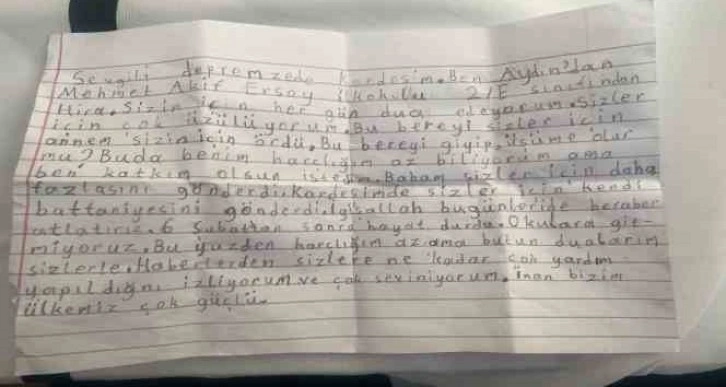 Sevgili depremzede kardeşim. Ben Aydın'dan
Mehmet Akif Ersoy ilkokulu 2/E sınıfından
Hira. Sizin için her gün dua ediyorum. Sizler
için çok üzülüyorum. Bu bereyi sizler için
annem sizin için ördü. Bu bereyi giyip, üşüme olur
mu? Buda benim harçlığım az biliyorum ama
ben katkım olsun istedim. Babam sizler için daha
fazlasını gönderdi. Kardeşimde sizler için kendi
battaniyesini gönderdi. İgsallah bugünleride beraber
atlatırız. 6 Şubattan sonra hayat durdu. Okulara git-
miyoruz. Bu yüzden harclığım az ama bütün dualarım
sizlerle. Haberlerden sizlere ne kadar çok yardım
yapıldığını izliyorum ve çok seviniyorum. İnan bizim
ülkemiz çok güçlü.